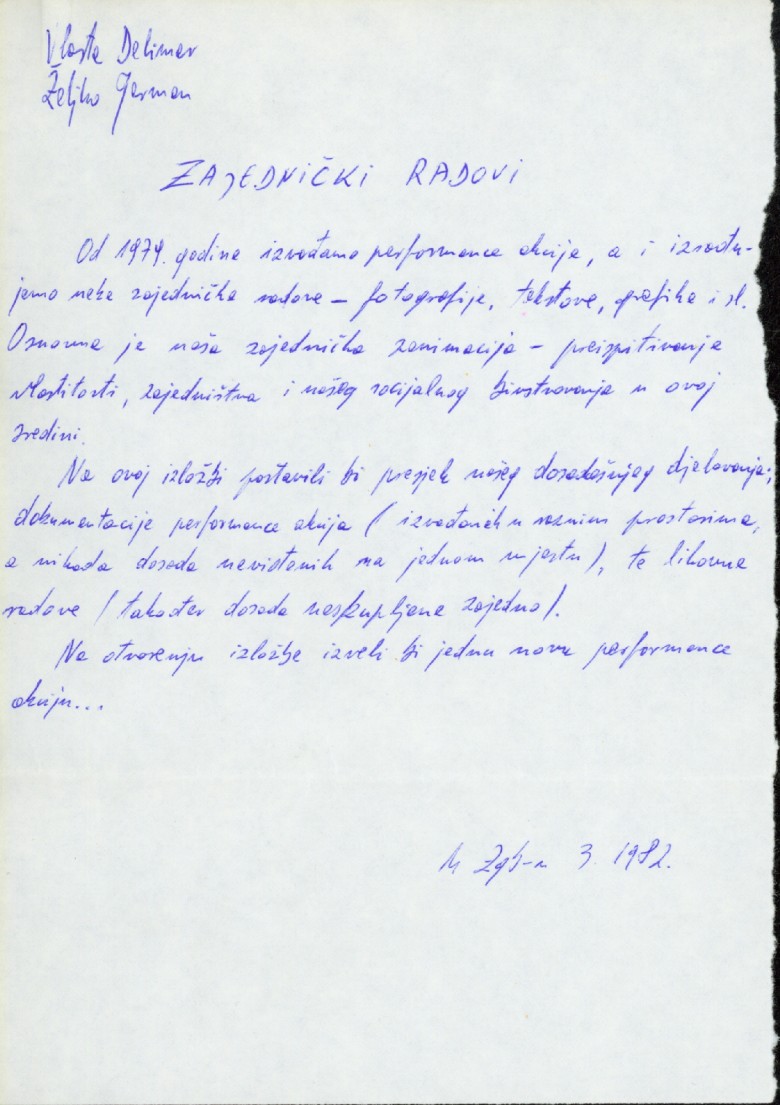 Vlasta Delimar
Željko Jerman
ZAJEDNIČKI RADOVI
Od 1979. godine izvođamo performance akcije, a i izrađu-
jemo neke zajedničke radove – fotografije, tekstove, grafike i sl.
Osnovna je naša zajednička zanimacija – preispitivanje
vlastitosti, zajedništva i našeg socijalnog bivstvovanja u ovoj
sredini.
Na ovoj izložbi postavili bi presjek našeg dosadašnjeg djelovanja;
dokumentacije performance akcija (izvođanih u raznim prostorima,
a nikada dosada neviđenih na jednom mjestu), te likovne
radove (također dosada neskupljene zajedno).
Na otvorenju izložbe izveli bi jednu novu performance
akciju...
U Zgb-u 3. 1982.